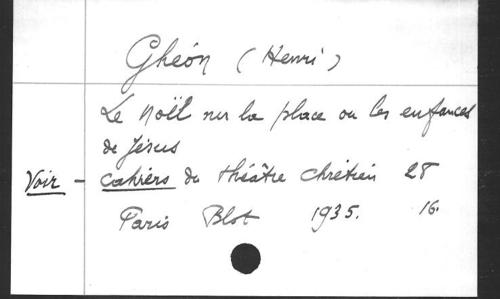 Ghéon (Henri)
Le Noël sur la place ou les enfances
de Jésus
Voir - Cahiers du théâtre chrétien 28
Paris Blot 1935. 16.